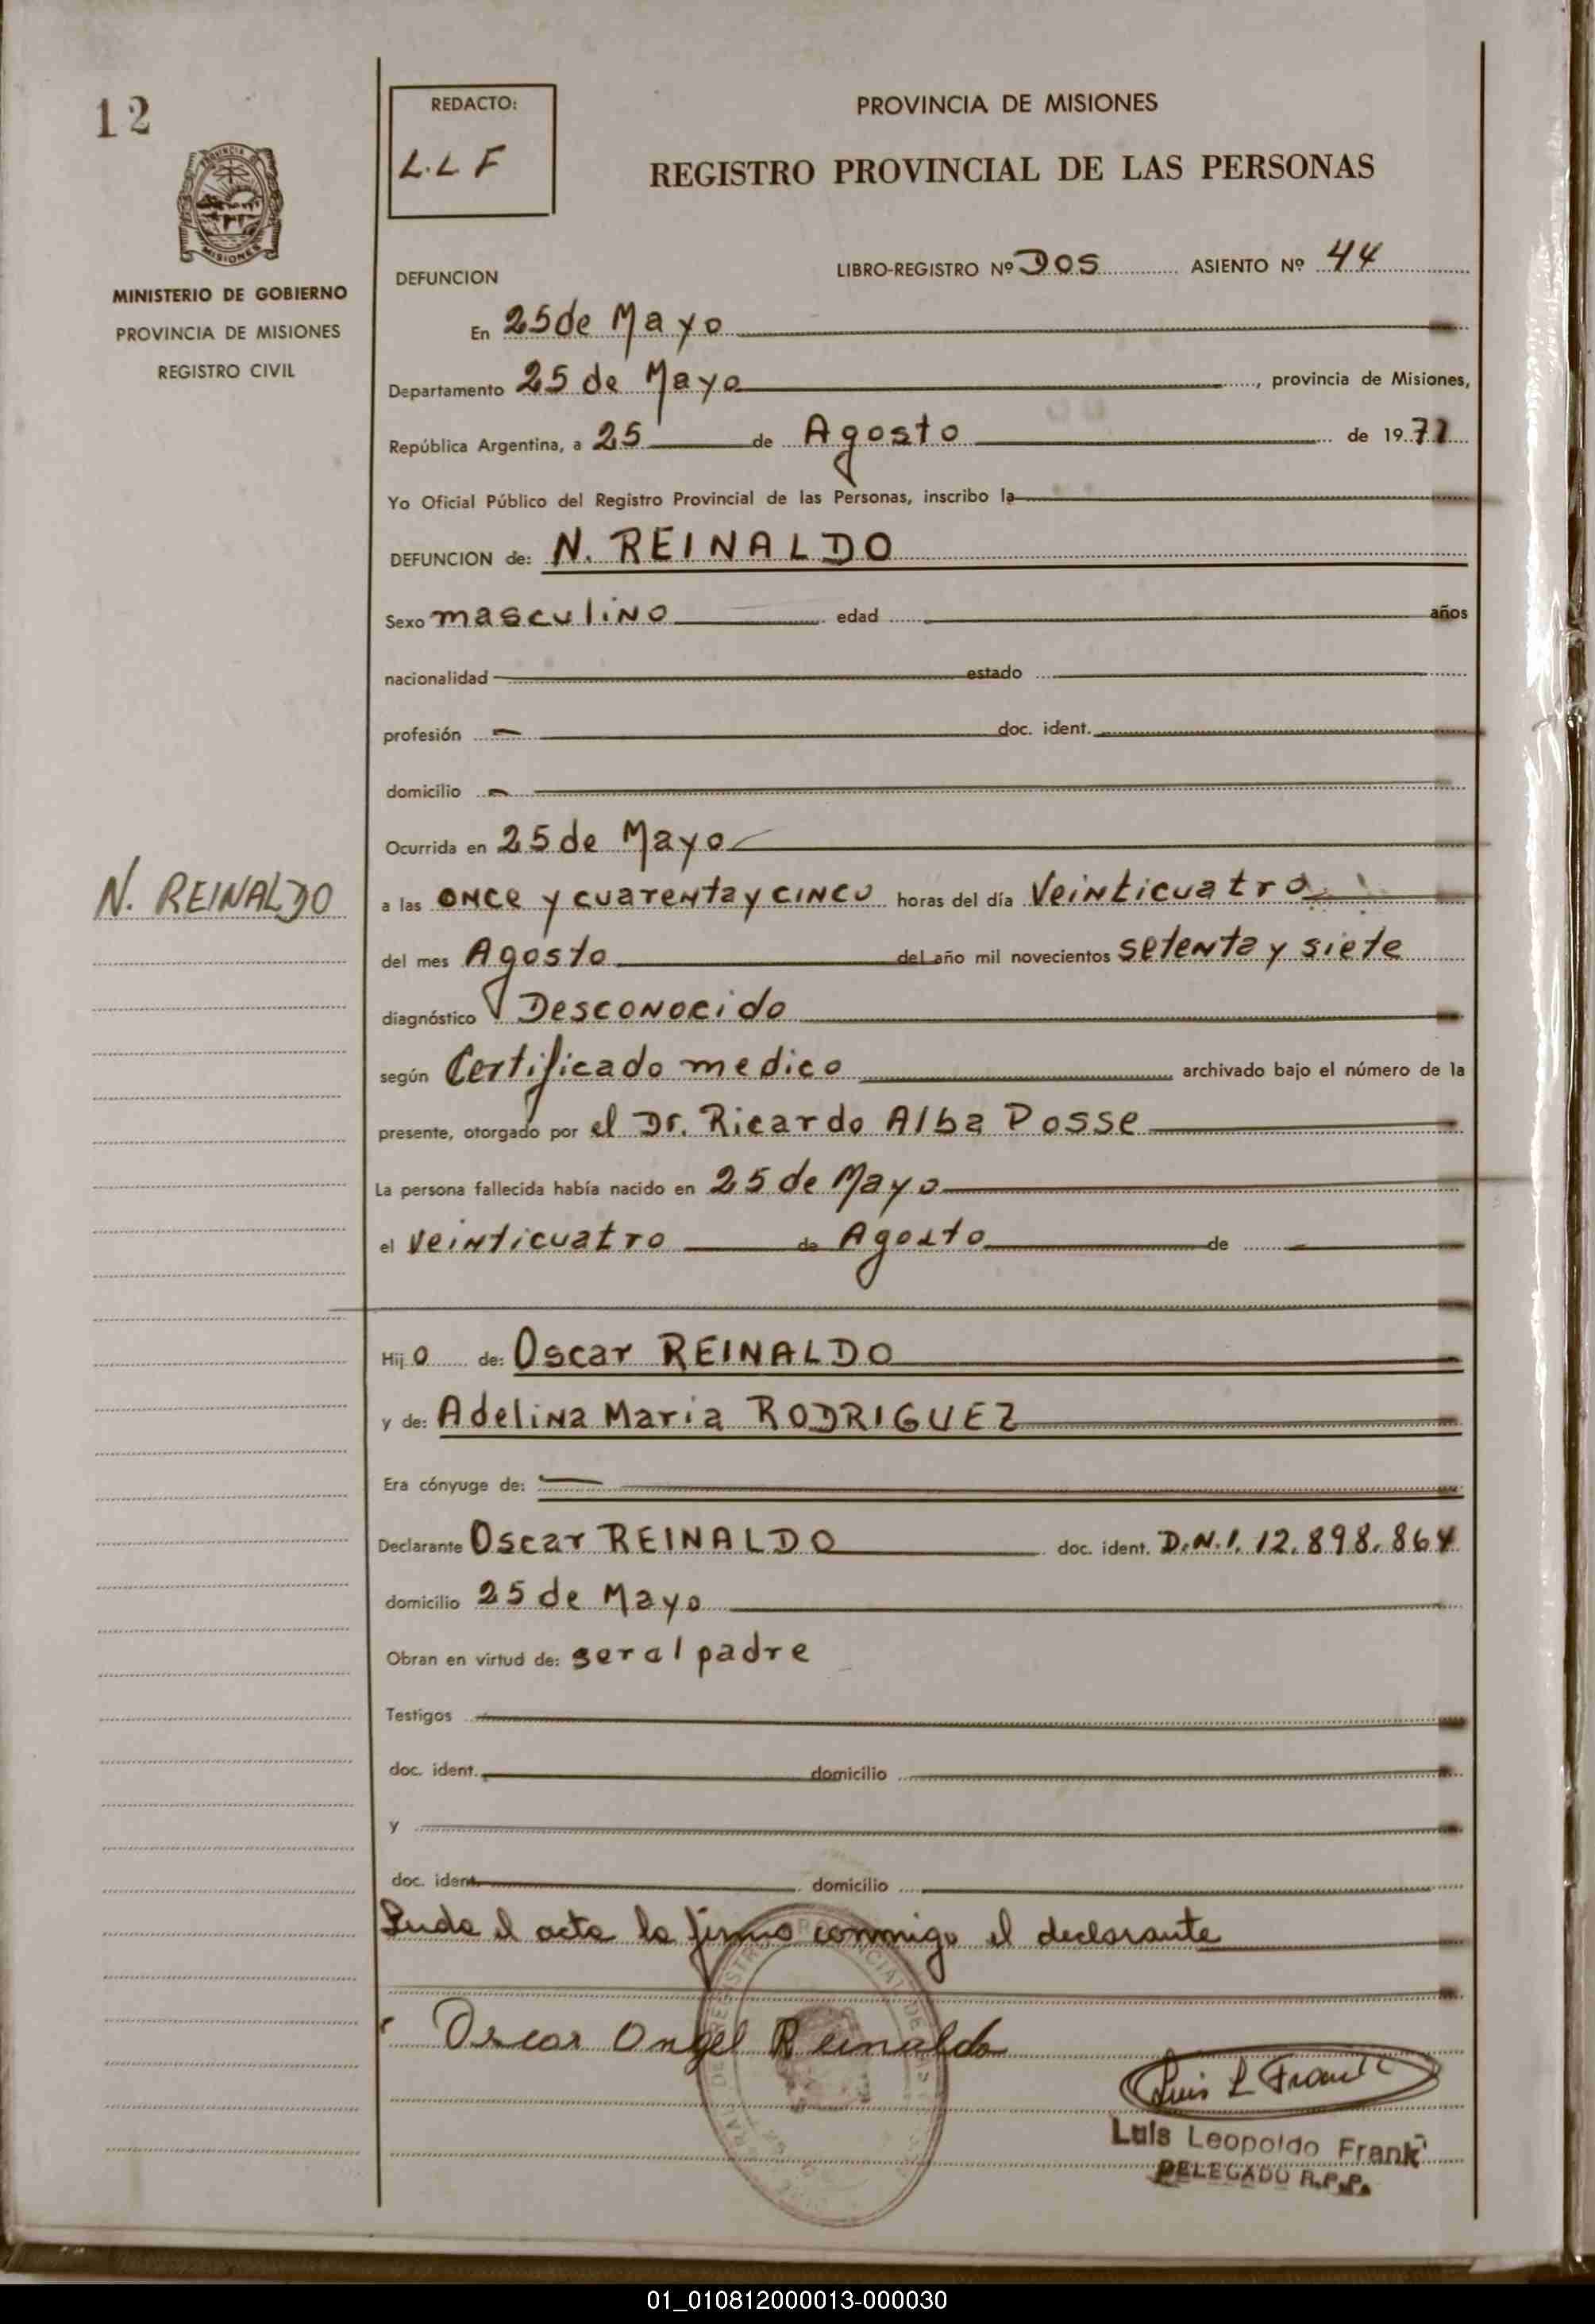 12
REDACTO:
L.L F
PROVINCIA DE MISIONES
REGISTRO PROVINCIAL DE LAS PERSONAS
MISIONES
MINISTERIO DE GOBIERNO
PROVINCIA DE MISIONES
REGISTRO CIVIL
DEFUNCION
LIBRO-REGISTRO Nº DOS ASIENTO Nº 44
En 25 de Mayo
Departamento 25 de Mayo, provincia de Misiones,
República Argentina, a 25 de Agosto de 1977
Yo Oficial Público del Registro Provincial de las Personas, inscribo la
DEFUNCION de: N. REINALDO
Sexo masculino edad años
nacionalidad estado
profesión doc. ident.
domicilio
Ocurrida en 25 de Mayo
N. REINALDO
a las once y cuarenta y cinco horas del día Veinticuatro
del mes Agosto del año mil novecientos setenta y siete
diagnóstico Desconocido
según Certificado medico archivado bajo el número de la
presente, otorgado por el Dr. Ricardo Alba Posse
La persona fallecida había nacido en 25 de Mayo
el veinticuatro de Agosto de
Hijo de: Oscar REINALDO
y de: Adelina Maria RODRIGUEZ
Era cónyuge de:
Declarante Oscar REINALDO doc. ident. D.N.I. 12.898.864
domicilio 25 de Mayo
Obran en virtud de: ser al padre
Testigos
doc. ident. domicilio
y
doc. ident. domicilio
Leida el acta la firma conmigo el declarante
Oscar Angel Reinaldo
Luis L Frank
Luis Leopoldo Frank
DELEGADO R.P.P.
01_010812000013-000030